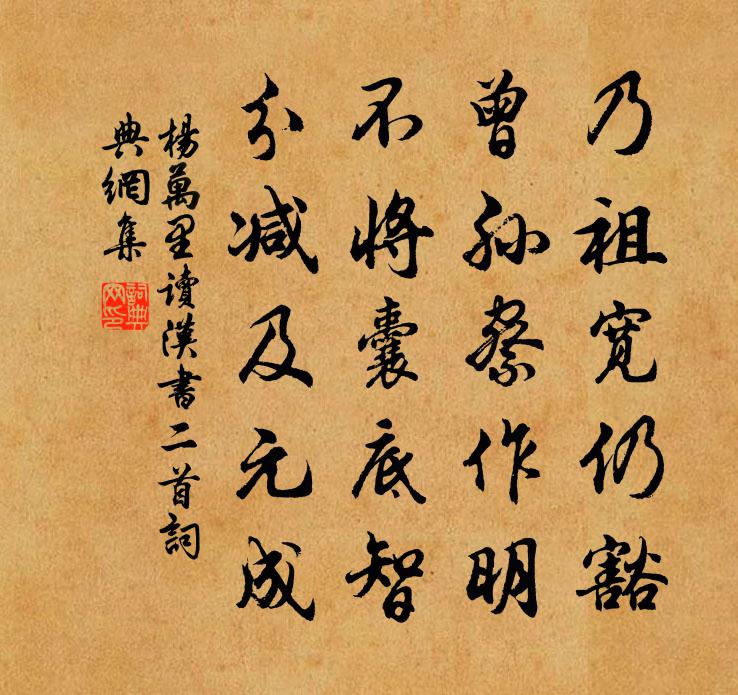 乃祖寬仍豁
曾孫察作明
不將囊底智
分減及元成
楊萬里讀漢書二首詞
典網集
詞典
网印